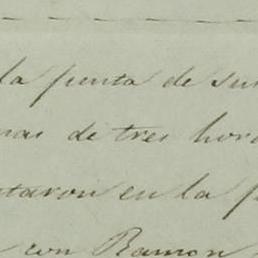 la punta de su
mas de tres hor
taron en la p
con Ramon